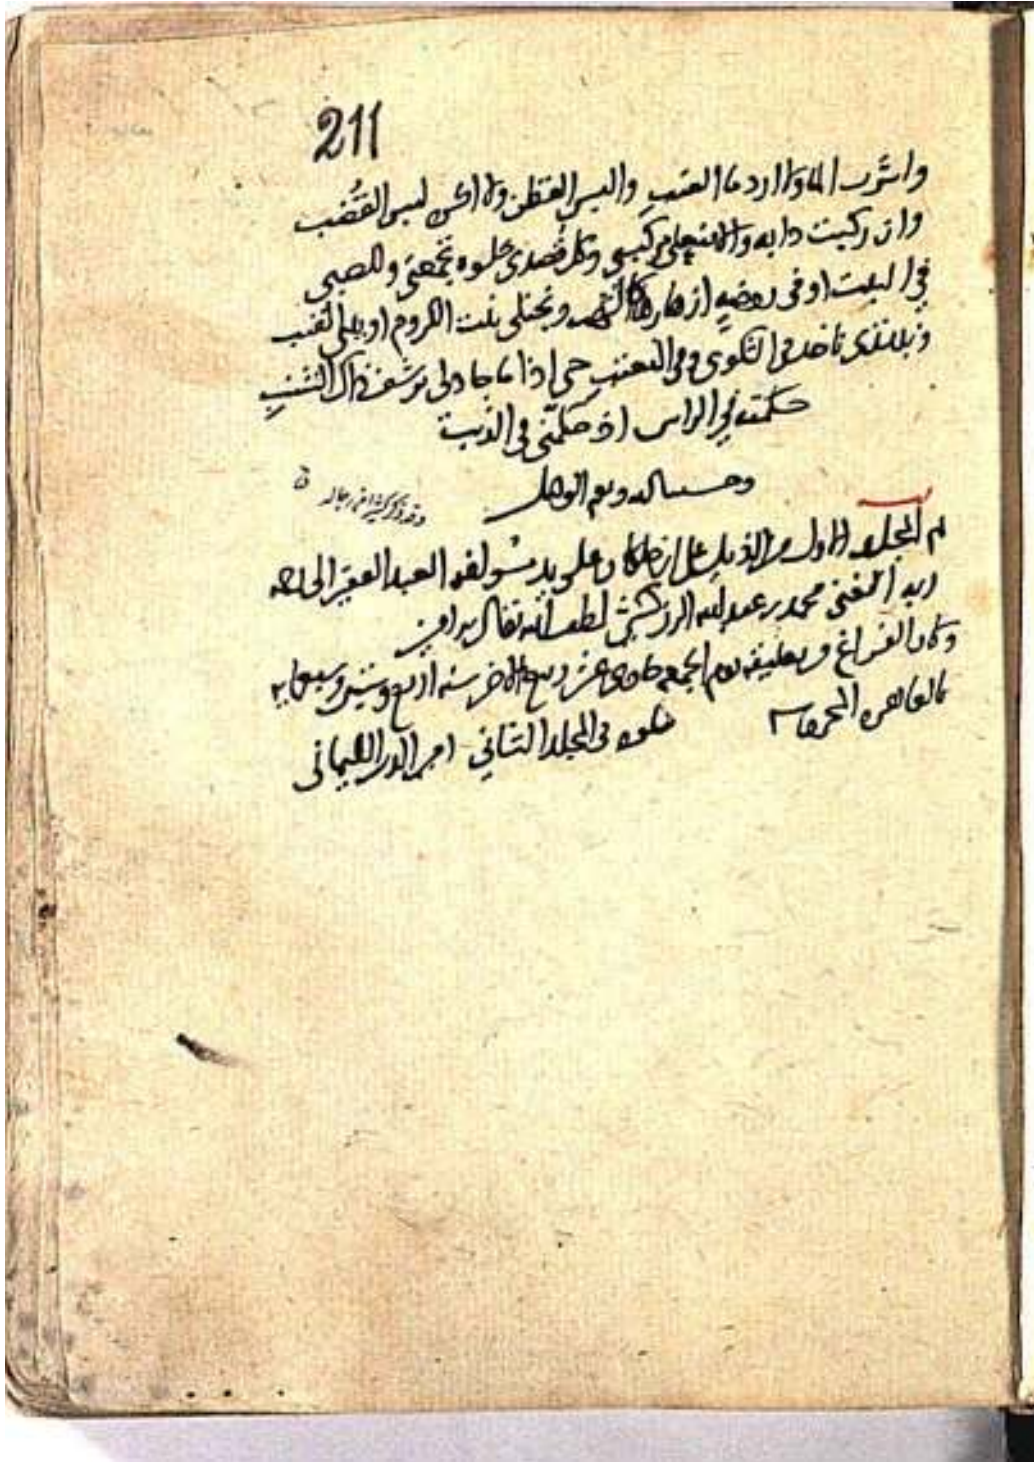 211
واشرب الماء ولا ارد ماء العنب والبس القطن ولا اكره لبس القصب
وان ركبت دابه والا فنعلي مركبي وكل قصدي خلوه تجمعني والصبي
في البيت او في روضه ازهارها ونجتلي بنت الكروم او بنت القنب
ونبتدي ناخذ في الشكوى وفي التعتب حتى اذا ما جاد لي برشف ذاك الشنب
حكمته في الراس اذ حكمني في الذنب
وحسبنا الله ونعم الوكيل
وقد ذكر رجاله
تم المجلد الاول من الذيل على ابن خلكان على يد مؤلفه العبد الفقير الى رحمه
ربه المغني محمد بن عبد الله الزركشي لطف الله تعالى به امين
وكان الفراغ من تعليقه يوم الجمعه حادي عشر ربيع الاخر سنه اربع وستين وسبعمايه
بالقاهره المحروسه يتلوه في المجلد الثاني امين الدين السليماني